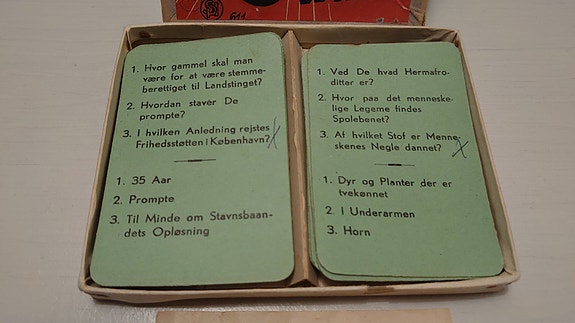 611
1. Hvor gammel skal man
være for at være stemme-
berettiget til Landstinget?
2. Hvordan staver De
prompte?
3. I hvilken Anledning rejstes
Frihedsstøtten i København?
1. 35 Aar
2. Prompte
3. Til Minde om Stavnsbaan-
dets Opløsning
1. Ved De hvad Hermafro-
ditter er?
2. Hvor paa det menneske-
lige Legeme findes
Spolebenet?
3. Af hvilket Stof er Menne-
skenes Negle dannet?
1. Dyr og Planter der er
tvekønnet
2. I Underarmen
3. Horn